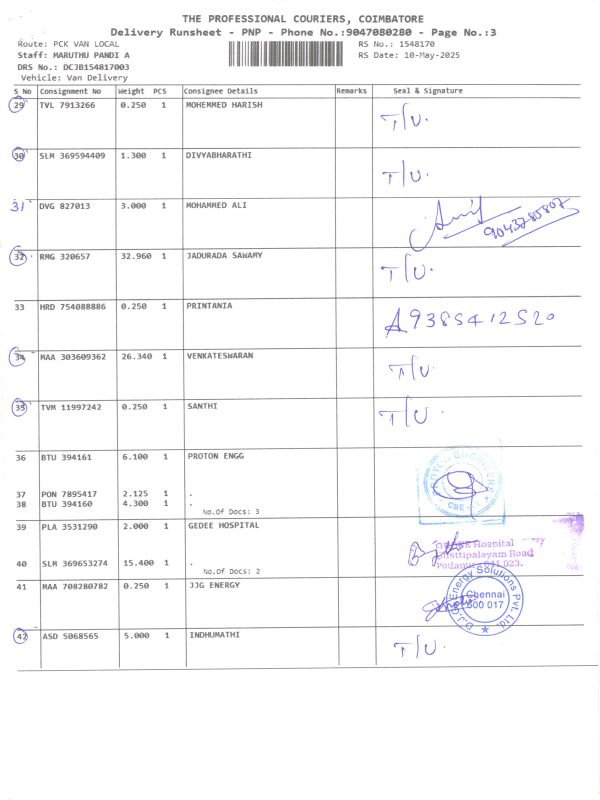 THE PROFESSIONAL COURIERS, COIMBATORE
Delivery Runsheet - PNP - Phone No.:9047080280 - Page No.:3
Route: PCK VAN LOCAL RS No.: 1548170
Staff: MARUTHU PANDI A RS Date: 10-May-2025
DRS No.: DCJB154817003
Vehicle: Van Delivery
S No Consignment No Weight PCS Consignee Details Remarks Seal & Signature
29 TVL 7913266 0.250 1 MOHEMMED HARISH T/U.
30 SLM 369594409 1.300 1 DIVYABHARATHI T/U.
31 DVG 827013 3.000 1 MOHAMMED ALI 9043785807
32 RMG 320657 32.960 1 JADURADA SAWAMY T/U.
33 HRD 754088886 0.250 1 PRINTANIA A9385412520
34 MAA 303609362 26.340 1 VENKATESWARAN T/U.
35 TVM 11997242 0.250 1 SANTHI T/U.
36 BTU 394161 6.100 1 PROTON ENGG
37 PON 7895417 2.125 1 .
38 BTU 394160 4.300 1 .
No.Of Docs: 3
39 PLA 3531290 2.000 1 GEDEE HOSPITAL
Hospital
Road
40 SLM 369653274 15.400 1 .
No.Of Docs: 2
41 MAA 708280782 0.250 1 JJG ENERGY
Energy Solutions Pvt. Ltd.
Chennai
600 017
42 ASD 5068565 5.000 1 INDHUMATHI T/U.